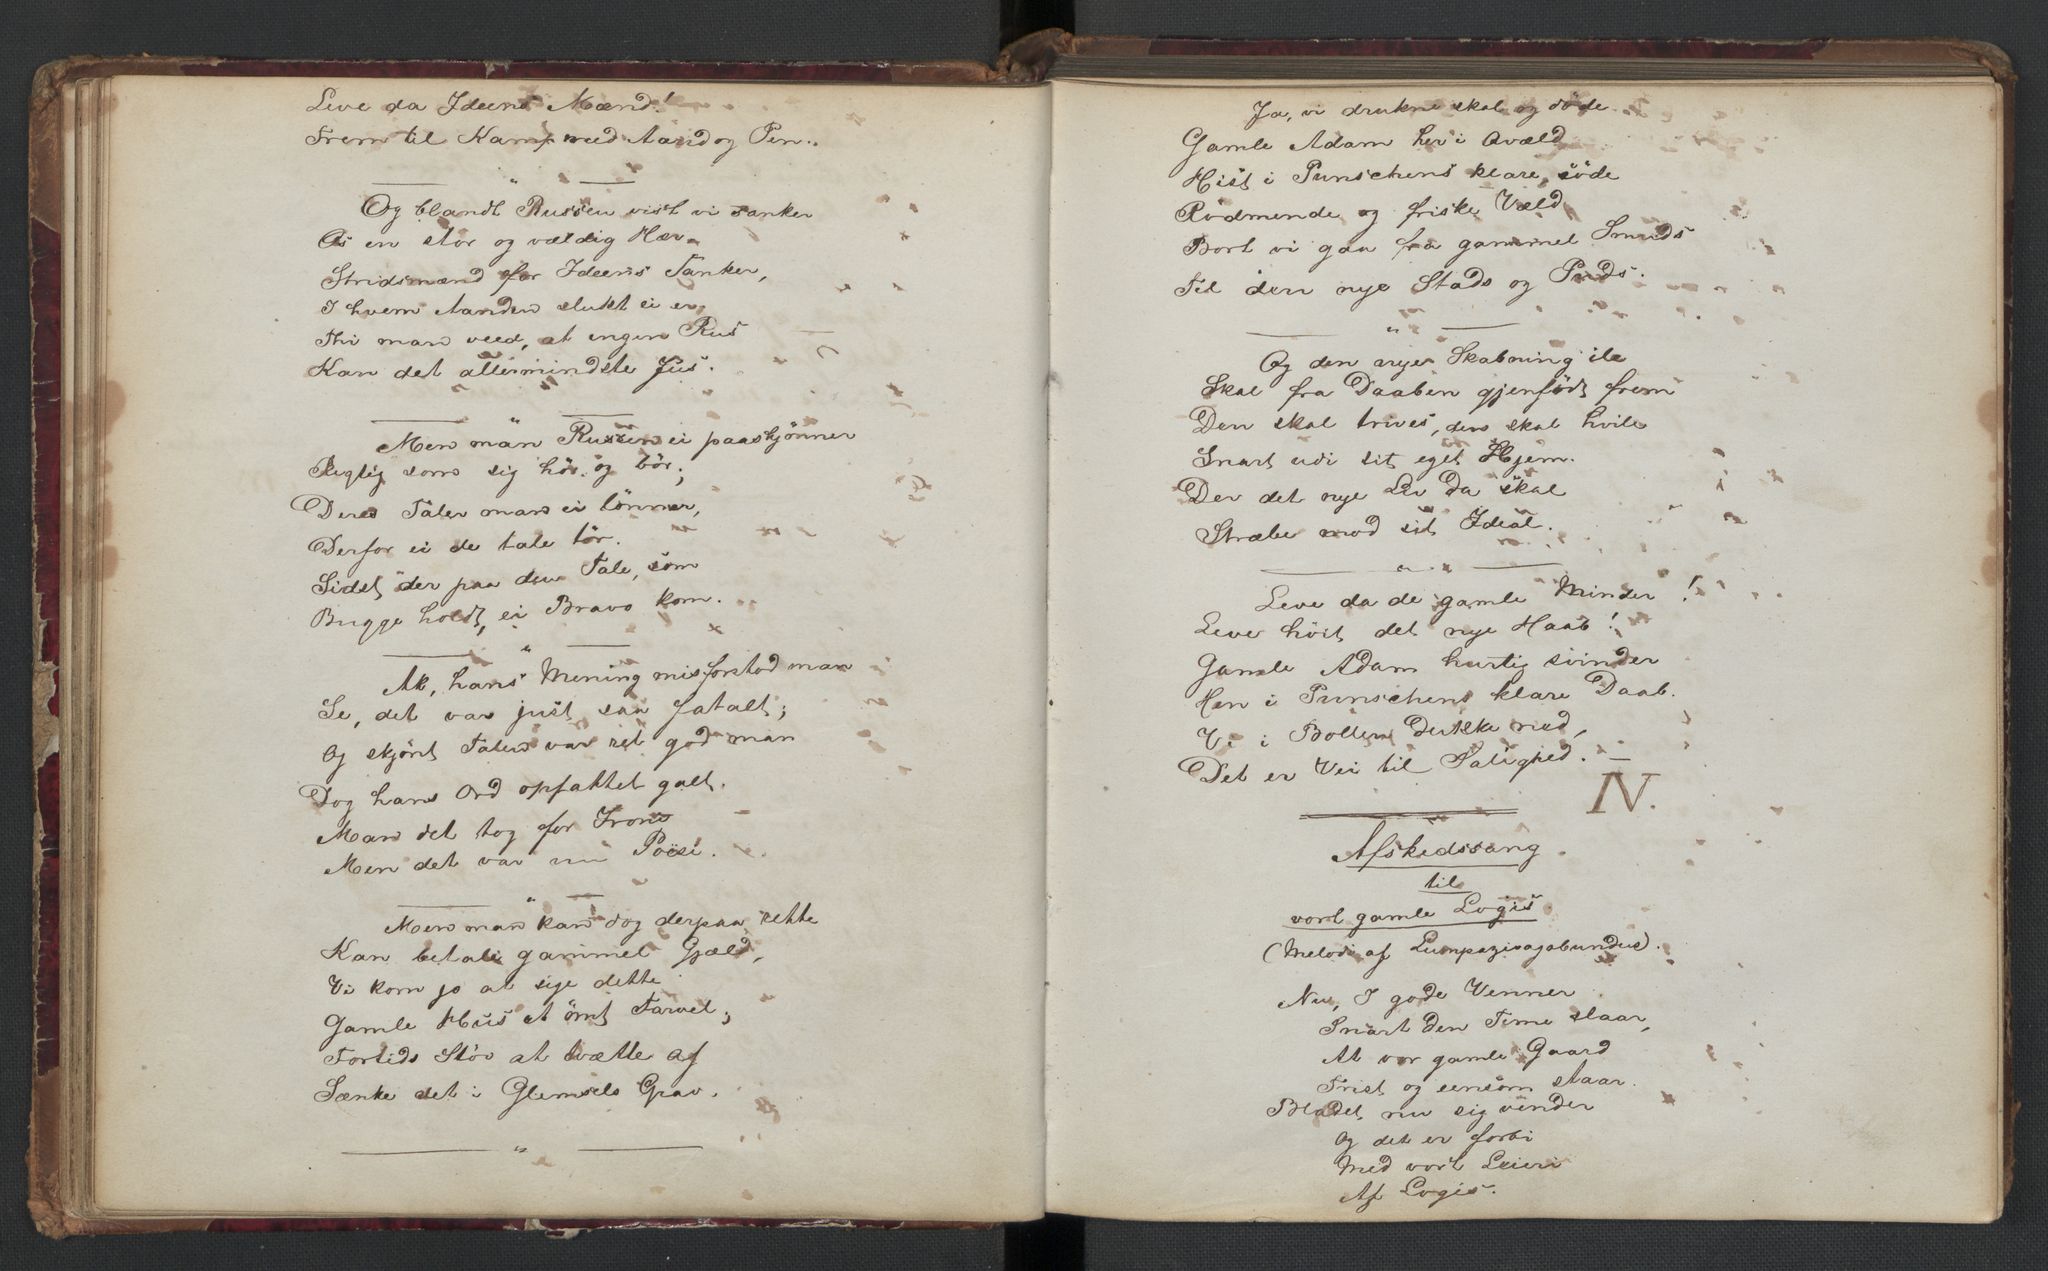 Leve da Ideens Mænd!
Frem til Kamp med Aand og Pen.
Og blandt Russen vist vi sanker
Os en stor og vældig Hær
Stridsmænd for Ideens Tanker,
I hvem Aanden slukt ei er,
Thi man veed, at ingen Rus
Kan det allermindste Jus.
Men man Russen ei paaskjønner
Rigtig som sig hør og bör;
Deres Taler man ei lönner,
Derfor ei de tale tör.
Sidst der paa den Tale, som
Bugge holdt, ei Bravo kom.
Ak, hans Mening misforstod man
Se, det var just saa fatalt;
Og skjönt Talen var ret god man
Dog hans Ord opfattet galt.
Man det tog for Ironi
Men det var nu Poësi.
Men man kan dog derpaa rette
Kan betale gammel Gjæld,
Vi kom jo at sige dette
Gamle Hus et ömt Farvel;
Fortids Stöv at tvætte af
Sænke det i Glemsels Grav.
Ja, vi drukne skal og döde
Gamle Adam her i Qvæld
Hist i Punschens klare, söde
Rödmende og friske Væld
Bort vi gaa fra gammel Smuds
Til den nye Stads og Puds.
Og den nye Skabning ile
Skal fra Daaben gjenfödt frem
Den skal trives, den skal hvile
Snart udi sit eget Hjem.
Der det nye Liv da skal
Stræbe mod sit Ideal.
Leve da de gamle Minder!
Leve höit det nye Haab!
Gamle Adam hurtig svinder
Hen i Punschens klare Daab.
Vi i Bollen dukke ned,
Det er Vei til Salighed.
N.
Afskedssang
til
vort gamle Logis.
(Melodi af Lumpazivagabundus).
Nu, I gode Venner
Snart den Time slaar,
At vor gamle Gaard
Trist og eensom staar.
Bladet nu sig vender
Og det er forbi
Med vort Leieri
Af Logis.